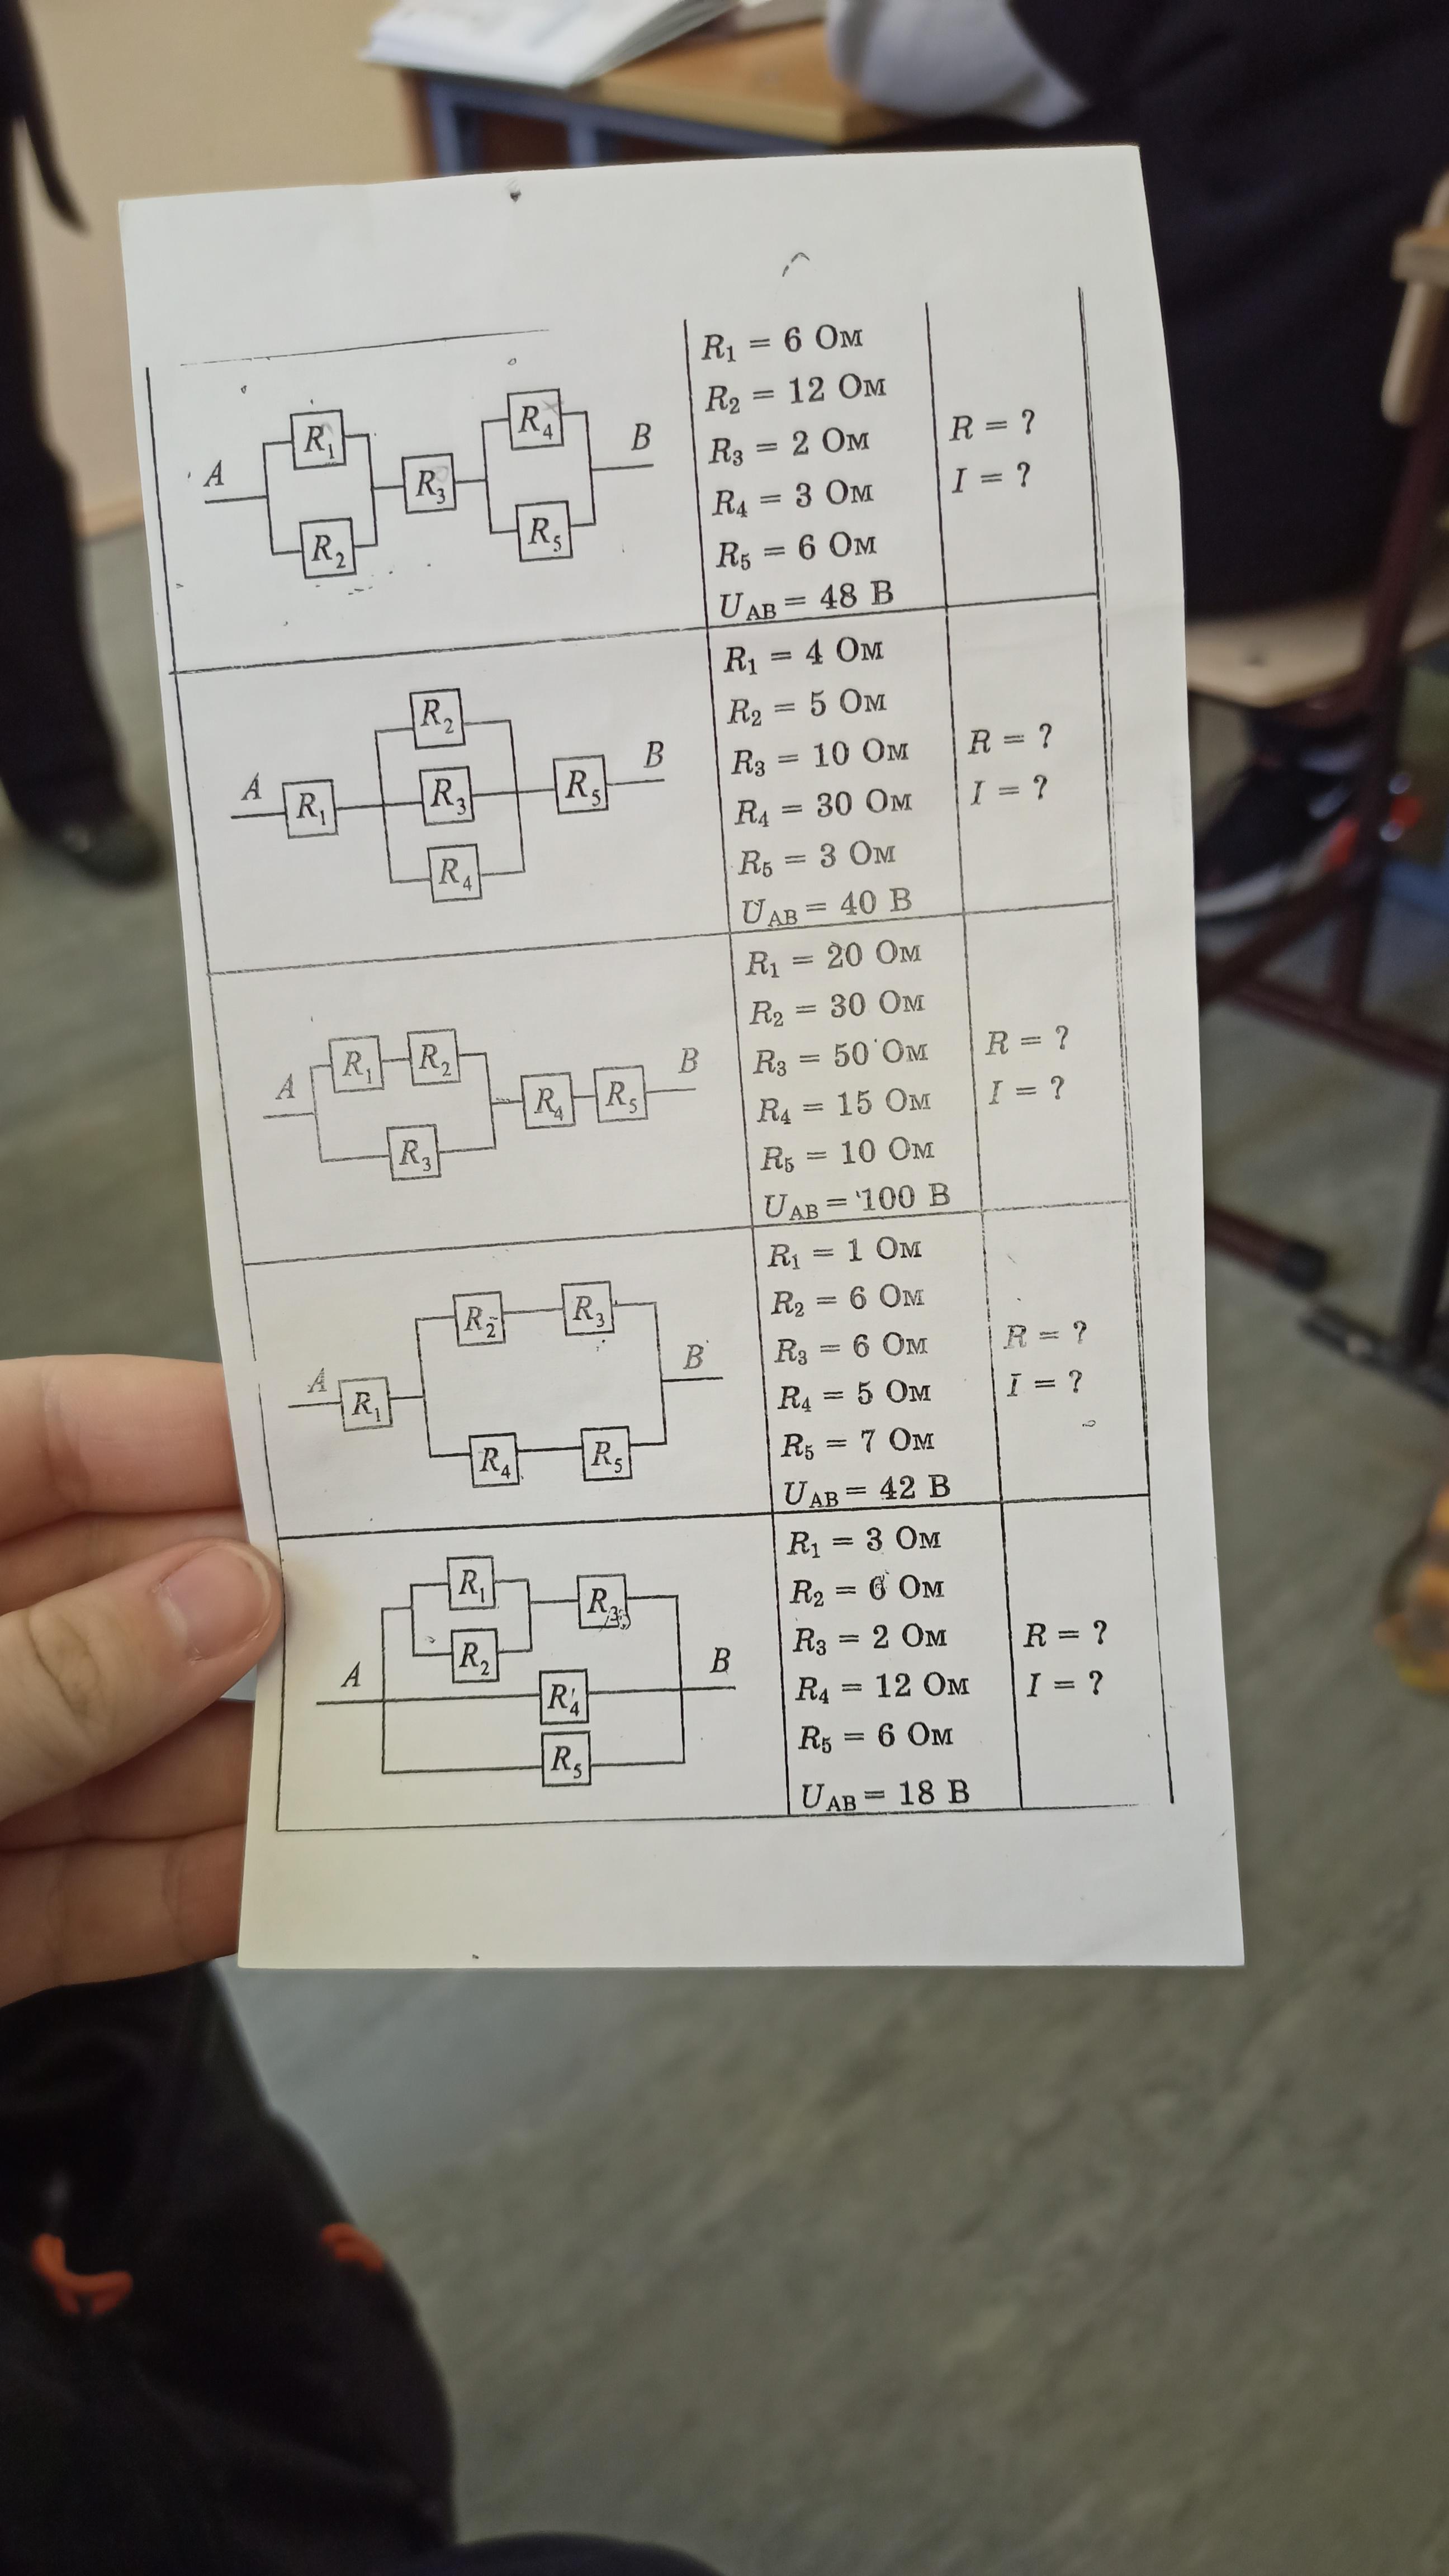 A
R₁
R₂
R₃
R₄
R₅
B
R₁ = 6 Ом
R₂ = 12 Ом
R₃ = 2 Ом
R₄ = 3 Ом
R₅ = 6 Ом
U_AB = 48 В
R = ?
I = ?
A
R₁
R₂
R₃
R₄
R₅
B
R₁ = 4 Ом
R₂ = 5 Ом
R₃ = 10 Ом
R₄ = 30 Ом
R₅ = 3 Ом
U_AB = 40 В
R = ?
I = ?
A
R₁
R₂
R₃
R₄
R₅
B
R₁ = 20 Ом
R₂ = 30 Ом
R₃ = 50 Ом
R₄ = 15 Ом
R₅ = 10 Ом
U_AB = 100 В
R = ?
I = ?
A
R₁
R₂
R₃
R₄
R₅
B
R₁ = 1 Ом
R₂ = 6 Ом
R₃ = 6 Ом
R₄ = 5 Ом
R₅ = 7 Ом
U_AB = 42 В
R = ?
I = ?
A
R₁
R₂
R₃
R₄
R₅
B
R₁ = 3 Ом
R₂ = 6 Ом
R₃ = 2 Ом
R₄ = 12 Ом
R₅ = 6 Ом
U_AB = 18 В
R = ?
I = ?